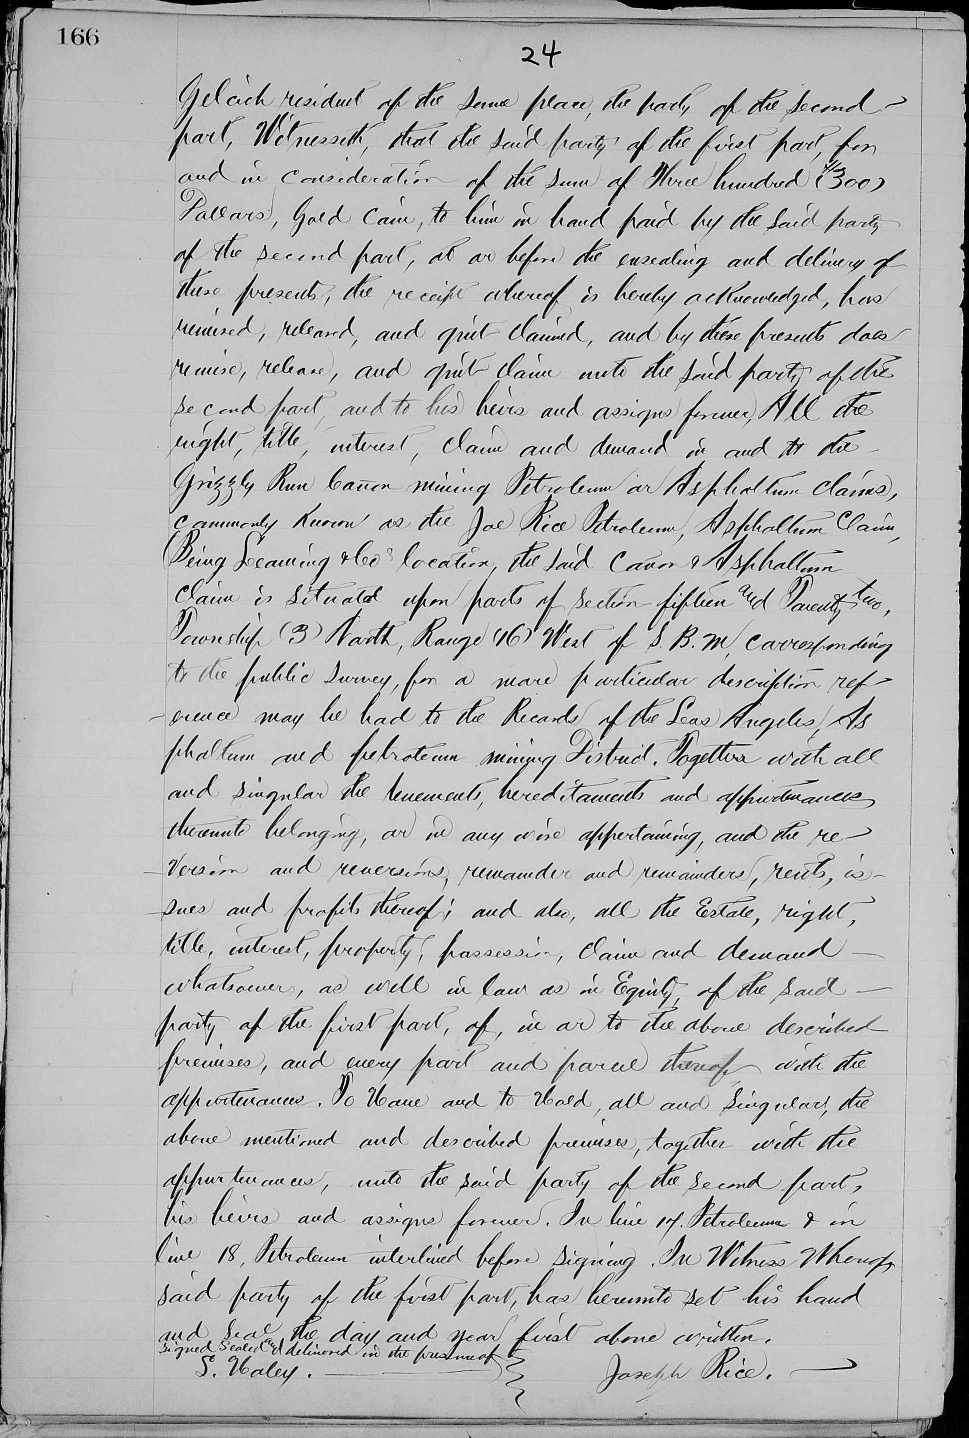 166
24
Gelcich resident of the same place, the party of the second
part, Witnesseth, that the said party of the first part, for
and in consideration of the sum of Three hundred ($300)
Dollars, Gold Coin, to him in hand paid by the said party
of the second part, at or before the ensealing and delivery of
these presents, the receipt whereof is hereby acknowledged, has
remised, released, and quit claimed, and by these presents does
remise, release, and quit claim unto the said party of the
second part, and to his heirs and assigns forever, All the
right, title, interest, claim and demand in and to the
Grizzly Run Cañon mining Petroleum or Asphaltum claims,
commonly known as the Joe Rice Petroleum, Asphaltum Claim,
(Being Leaming & Co's location, the said Canon & Asphaltum
claim is situated upon parts of section fifteen and Twenty two,
Township (3) North, Range (16) West of S. B. M, corresponding
to the public survey, for a more particular description ref
erence may be had to the Records of the Los Angeles, As
phaltum and petroleum mining District. Together with all
and singular the tenements, hereditaments and appurtenances
thereunto belonging, or in any wise appertaining, and the re-
version and reversions, remainder and remainders, rents, is-
sues and profits thereof; and also, all the Estate, right,
title, interest, property, possession, claim and demand
whatsoever, as well in law as in Equity, of the said
party of the first part, of, in or to the above described
premises, and every part and parcel thereof with the
appurtenances. To Have and to Hold, all and singular, the
above mentioned and described premises, together with the
appurtenances, unto the said party of the second part,
his heirs and assigns forever. In line 17. Petroleum & in
line 18, Petroleum interlined before signing. In Witness Whereof,
said party of the first part, has hereunto set his hand
and seal the day and year first above written.
Signed Sealed and delivered in the presence of
S. Haley. Joseph Rice.